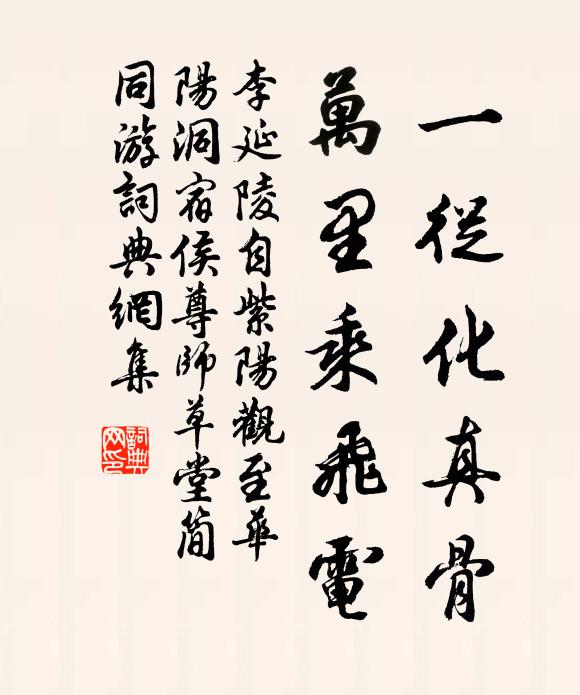 一從化真骨
萬里乘飛電
李延陵自紫陽觀至華
陽洞宿侯尊師草堂簡
同游詞典網集
詞典
网印